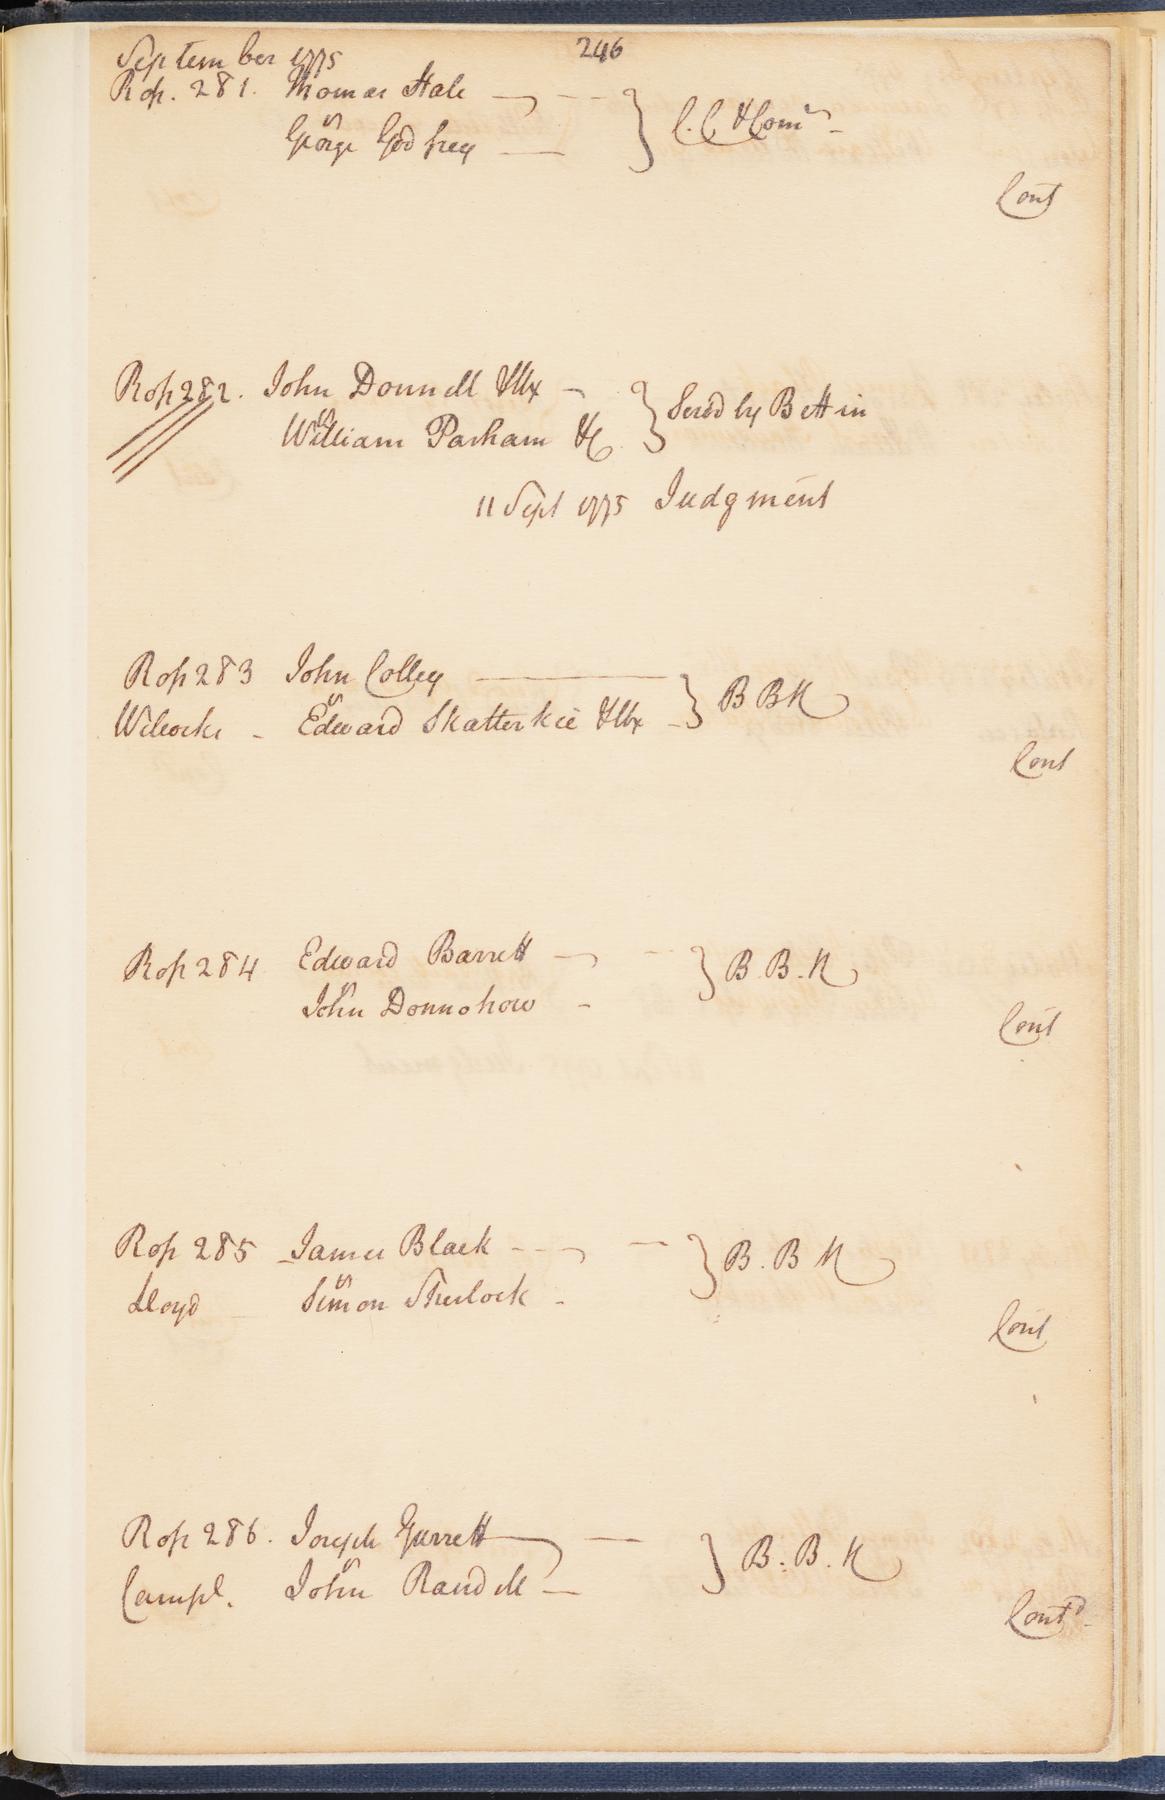 September 1775
246
Rop. 281. Thomas Hale
vs
George Godfrey
C. C & Com
Cont
Rop 282. John Donnell & Ux
vs
William Parham &c
Served by Bettin
11 Sept 1775 Judgment
Rop 283 John Colley
vs
Wilcocks - Edward Skatterkie & Ux
B B K
Cont
Rop 284 Edward Barrett
vs
John Donnohow
B. B. K
Cont
Rop 285 James Black
vs
Lloyd Simon Sherlock
B. B K
Cont
Rop 286. Joseph Garrett
vs
Campl. John Randell
B. B. K
Contd